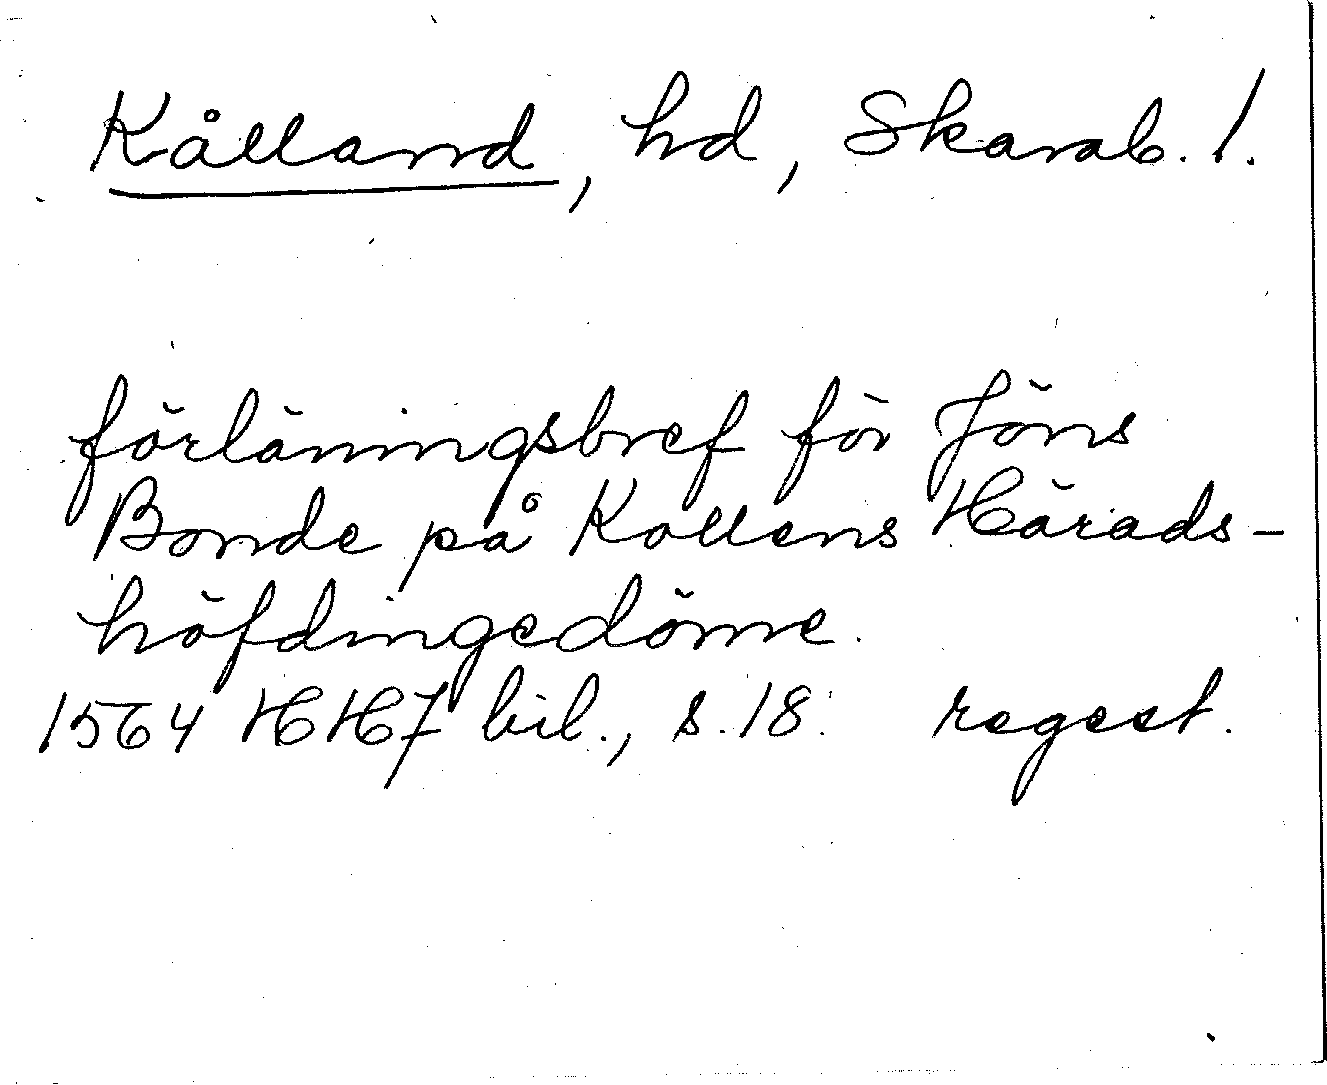 Kålland, hd, Skarab. l.
förläningsbref för Jöns
Bonde på Kollens Härads-
höfdingedöme.
1564 HH7 bil., s. 18. regest.